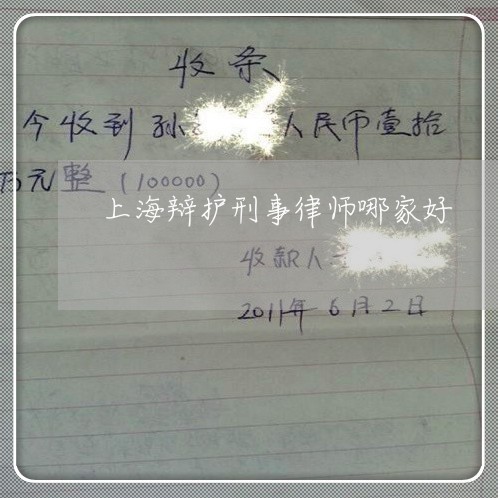 收条
今收到孙 人民币壹拾
万元整（100000）
上海辩护刑事律师哪家好
收款人
2011年6月2日